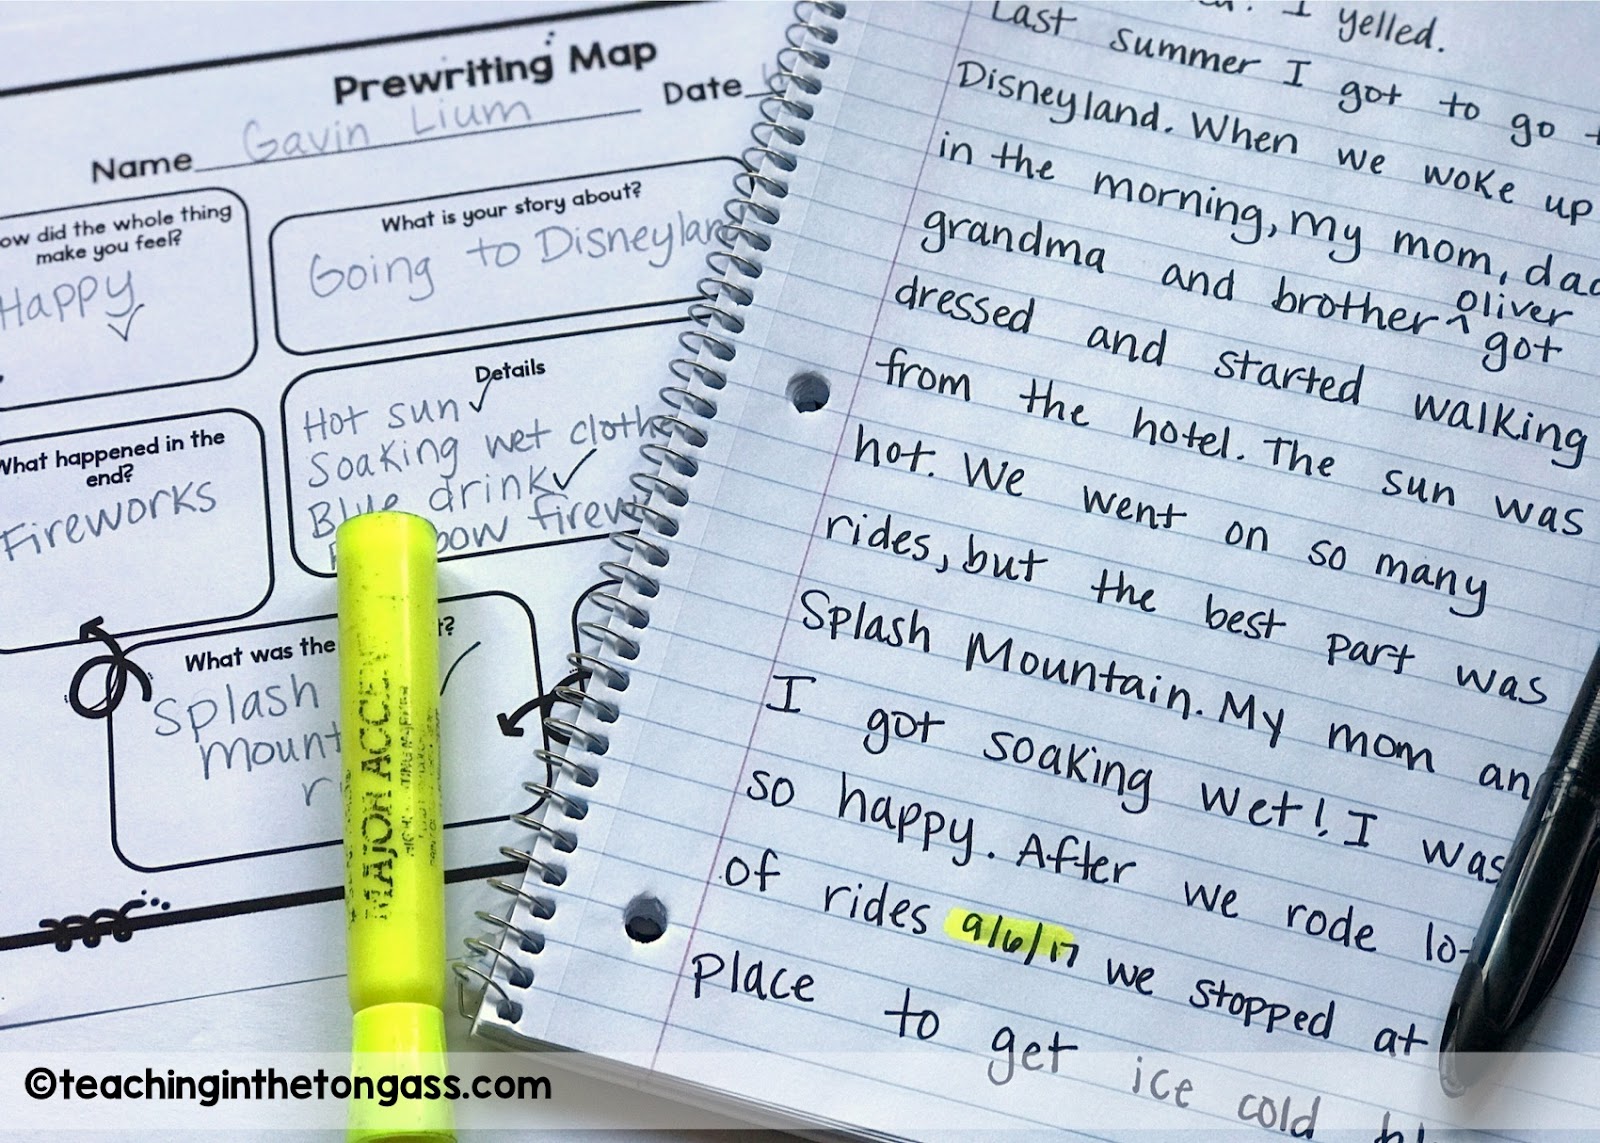 Prewriting Map
Name Gavin Lium Date
How did the whole thing
make you feel?
Happy ✓
What is your story about?
Going to Disneyland
Details
Hot sun ✓
Soaking wet clothes
Blue drink ✓
What happened in the
end?
Fireworks
What was the
Splash
I yelled.
Last summer I got to go
Disneyland. When we woke up
in the morning, my mom, dad
grandma and brother ^ oliver got
dressed and started walking
from the hotel. The sun was
hot. We went on so many
rides, but the best part was
Splash Mountain. My mom an
I got soaking wet! I was
so happy. After we rode lo
of rides 9/6/17 we stopped at
place to get ice cold
MAJOR ACCENT
©teachinginthetongass.com